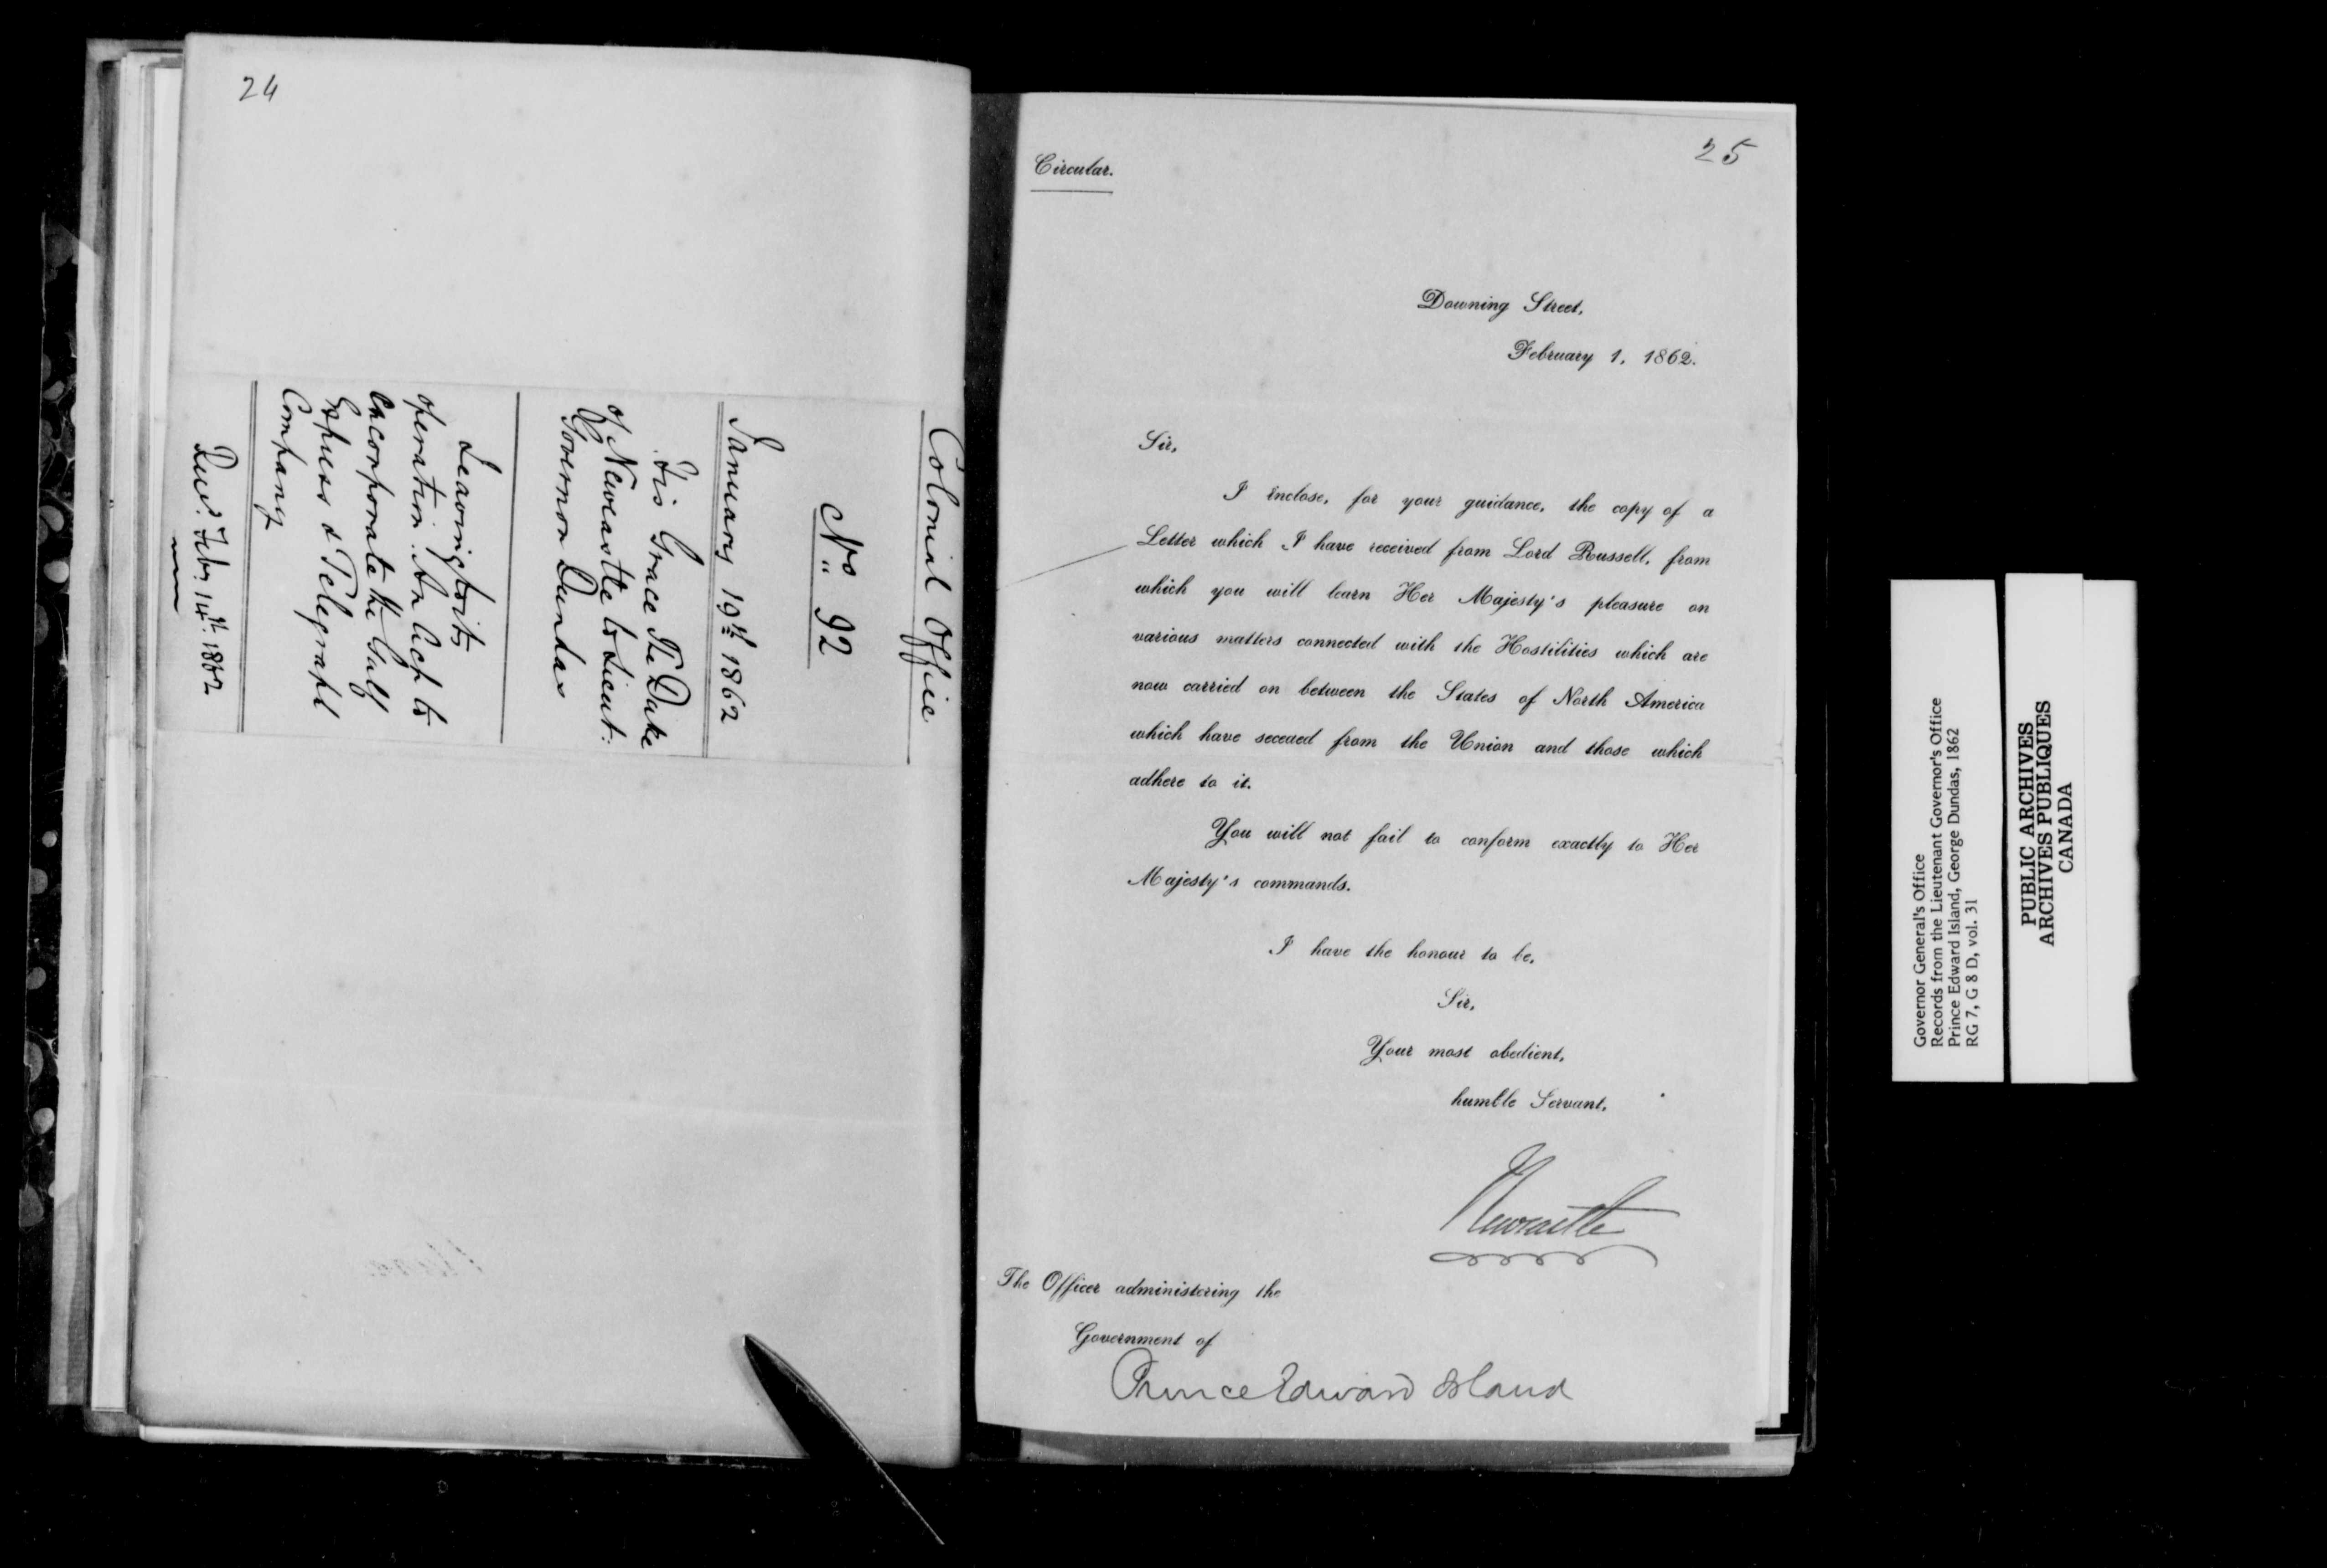 24
Colonial Office
No 92
January 19th 1862
His Grace The Duke
of Newcastle to Lieut:
Governor Dundas
Leaving to its
operation. An Act to
incorporate the Gulf
Express & Telegraph
Company
Recd. Feby. 14th. 1862
25
Circular.
Downing Street,
February 1, 1862.
Sir,
I inclose, for your guidance, the copy of a
Letter which I have received from Lord Russell, from
which you will learn Her Majesty's pleasure on
various matters connected with the Hostilities which are
now carried on between the States of North America
which have seceded from the Union and those which
adhere to it.
You will not fail to conform exactly to Her
Majesty's commands.
I have the honour to be,
Sir,
Your most obedient,
humble Servant,
Newcastle
The Officer administering the
Government of
Prince Edward Island
Governor General's Office
Records from the Lieutenant Governor's Office
Prince Edward Island, George Dundas, 1862
RG 7, G 8 D, vol. 31
PUBLIC ARCHIVES
ARCHIVES PUBLIQUES
CANADA